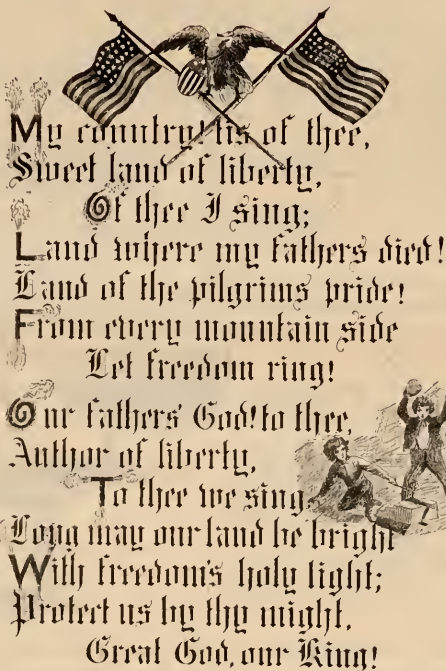 My country! tis of thee,
Sweet land of liberty,
Of thee I sing;
Land where my fathers died!
Land of the pilgrims pride!
From every mountain side
Let freedom ring!
Our fathers' God! to thee,
Author of liberty,
To thee we sing,
Long may our land be bright
With freedom's holy light;
Protect us by thy might,
Great God, our King!